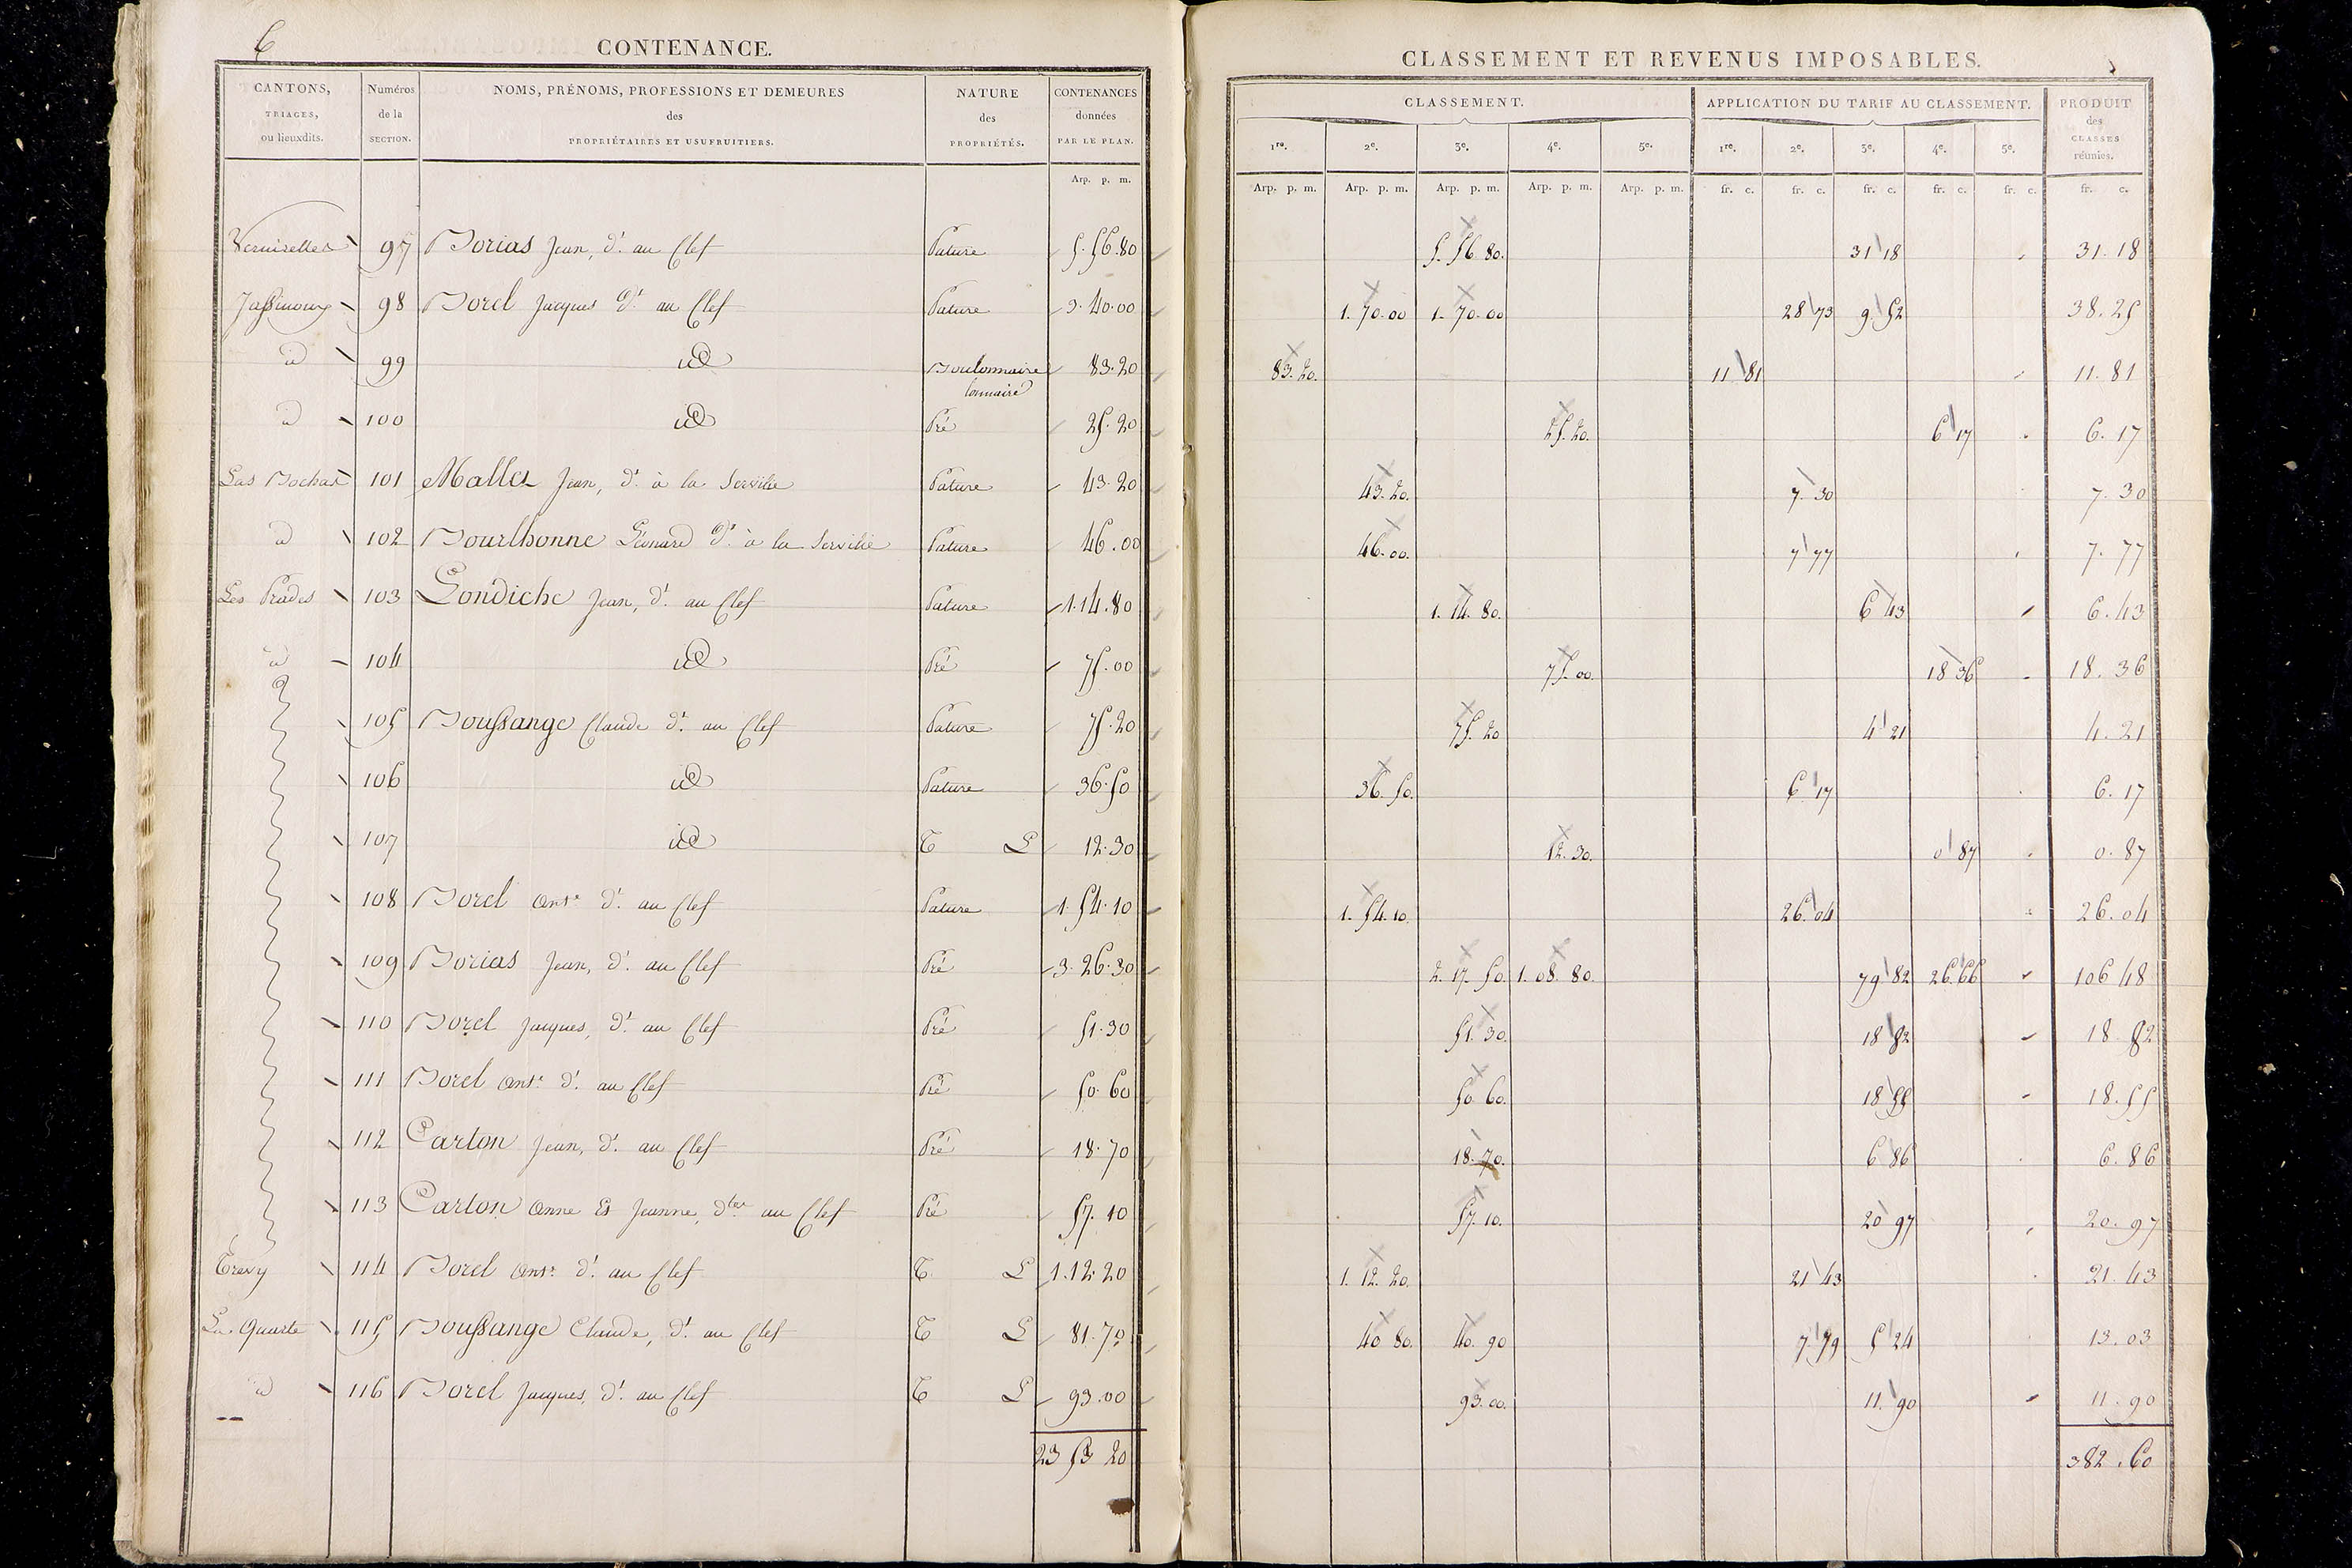 6
CONTENANCE.
CANTONS,
TRIAGES,
ou lieuxdits.
Numéros
de la
SECTION.
NOMS, PRÉNOMS, PROFESSIONS ET DEMEURES
des
PROPRIÉTAIRES ET USUFRUITIERS.
NATURE
des
PROPRIÉTÉS.
CONTENANCES
données
PAR LE PLAN.
Arp. p. m.
97 Borias Jean, dt. au Clef Pature 5.56.80
98 Borel Jacques dt. au Clef Pature 3.40.00
id 99 id 83.20
id 100 id Pré 25.20
101 Mallet Jean, dt. à la Servilie Pature 43.20
id 102 Bourlhonne Léonard dt. à la Servilie Pature 46.00
Les Prades 103 Londiche Jean, dt. au Clef Pature 1.14.80
id 104 id Pré 75.00
105 Boussange Claude dt. au Clef Pature 75.20
106 id Pature 36.50
107 id T L 12.30
108 Borel Ante. dt. au Clef Pature 1.54.10
109 Borias Jean, dt. au Clef Pré 3.26.30
110 Borel Jacques, dt. au Clef Pré 51.30
111 Borel Ante. dt. au Clef Pré 50.60
112 Carton Jean, dt. au Clef Pré 18.70
113 Carton Anne et Jeanne, dtes au Clef Pré 57.10
Trevy 114 Borel Ante. dt. au Clef T L 1.12.20
La Quarte 115 Boussange Claude, dt. au Clef T L 81.70
id 116 Borel Jacques, dt. au Clef T L 93.00
23 53 20
CLASSEMENT ET REVENUS IMPOSABLES.
CLASSEMENT.
APPLICATION DU TARIF AU CLASSEMENT.
PRODUIT
des
CLASSES
réunies.
1re. 2e. 3e. 4e. 5e. 1re. 2e. 3e. 4e. 5e.
Arp. p. m. Arp. p. m. Arp. p. m. Arp. p. m. Arp. p. m. fr. c. fr. c. fr. c. fr. c. fr. c. fr. c.
5.56.80. 31 18 31.18
1.70.00 1.70.00 28 73 9.52 38.25
83.20. 11 81 11.81
25.20. 6 17 6.17
43.20. 7.30 7.30
46.00. 7 77 7.77
1.14.80. 6 43 6.43
75.00. 18 36 18.36
75.20 4 21 4.21
36.50. 6 17 6.17
12.30. 0 87 0.87
1.54.10. 26.04 26.04
2.17.50. 1.08.80. 79 82 26.66 106 48
51.30. 18 82 18 82
50.60. 18 55 18.55
18.70. 6 86 6.86
57.10. 20 97 20.97
1.12.20. 21 43 21.43
40 80. 40.90 7.79 5 24 13.03
93.00. 11.90 11.90
382.60